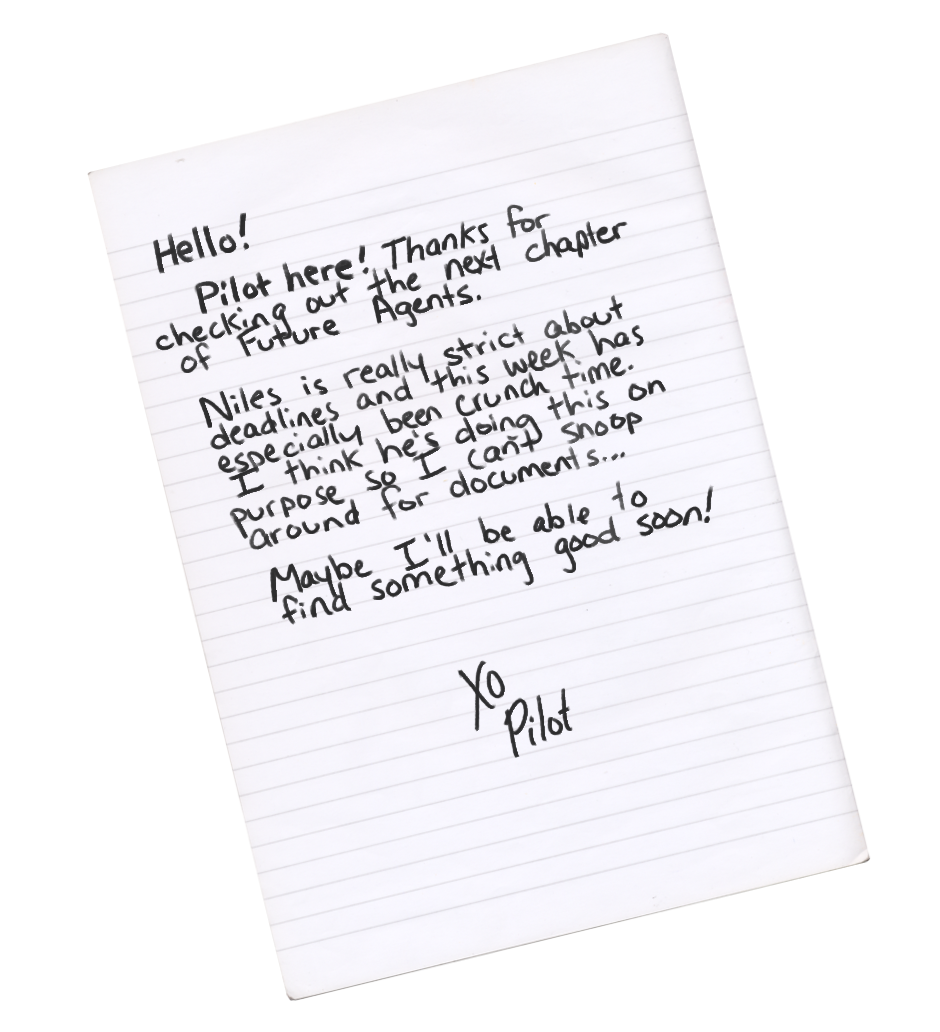 Hello!
Pilot here! Thanks for
checking out the next chapter
of Future Agents.
Niles is really strict about
deadlines and this week has
especially been crunch time.
I think he's doing this on
purpose so I can't snoop
around for documents...
Maybe I'll be able to
find something good soon!
XO
Pilot